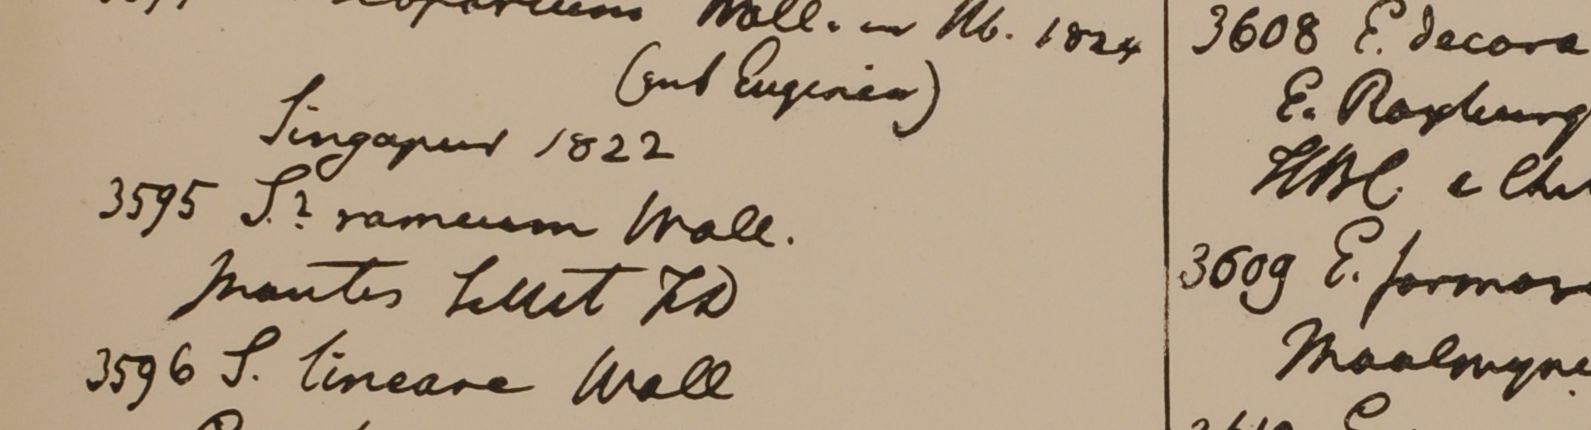 Wall. in Hb. 1824
(sub Eugenia)
Singapur 1822
3595 S.? rameum Wall.
Montes Sillet FD
3596 S. lineare Wall
3608 E. decora
E. Roxburg
HBC. e
3609 E. formos
Moalmyne